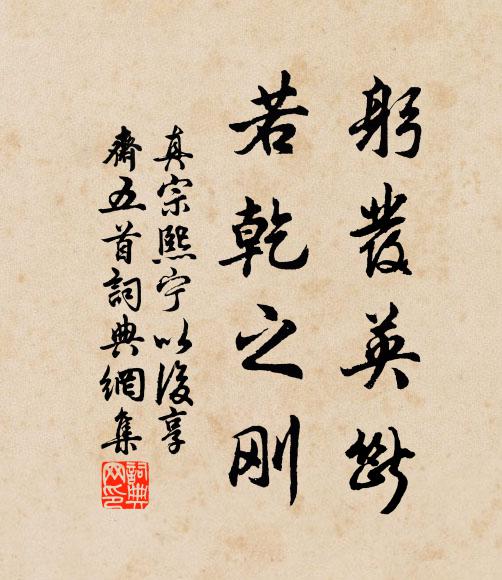 躬發英斷
若乾之刚
真宗熙宁以後享
齋五首詞典網集
詞典
网印